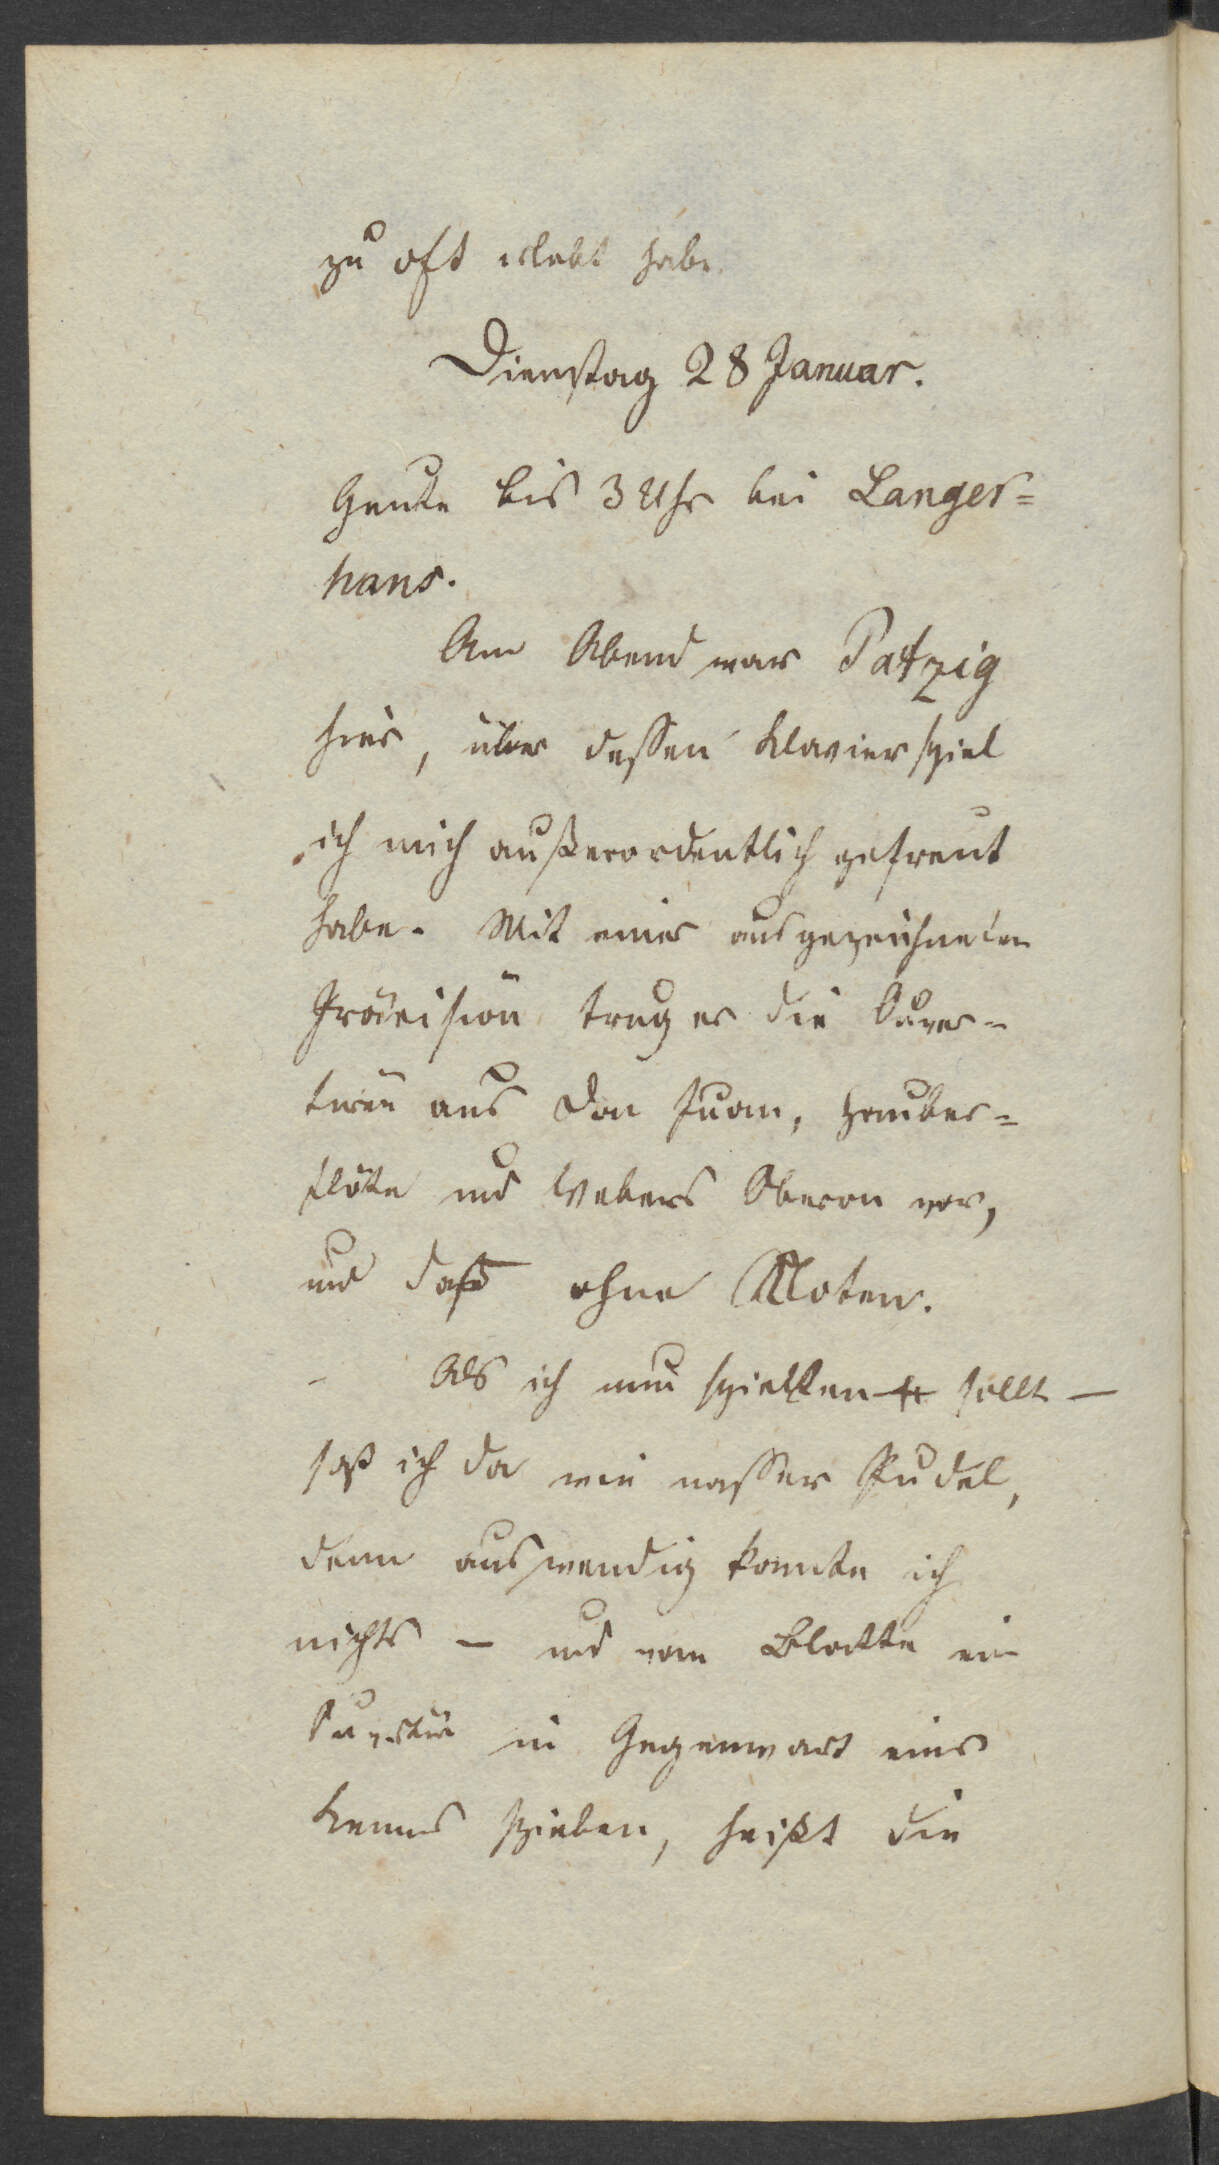 zu oft erlebt habe.
Dienstag 28 Januar.
Heute bis 3 Uhr bei Langer=
hans.
Am Abend war Patzig
hier, über dessen Klavierspiel
ich mich außerordentlich gefreut
habe. Mit einer ausgezeichneten
Präcision trug er die Ouver=
türen aus Don Juan, Zauber=
flöte und Webers Oberon vor,
und daß ohne Noten.
Als ich nun spielen sollt —
saß ich da wie nasser Pudel,
denn auswendig konnte ich
nichts — und vom Blatte ein
Ouvertür in Gegenwart eines
Kenners spielen, heißt die